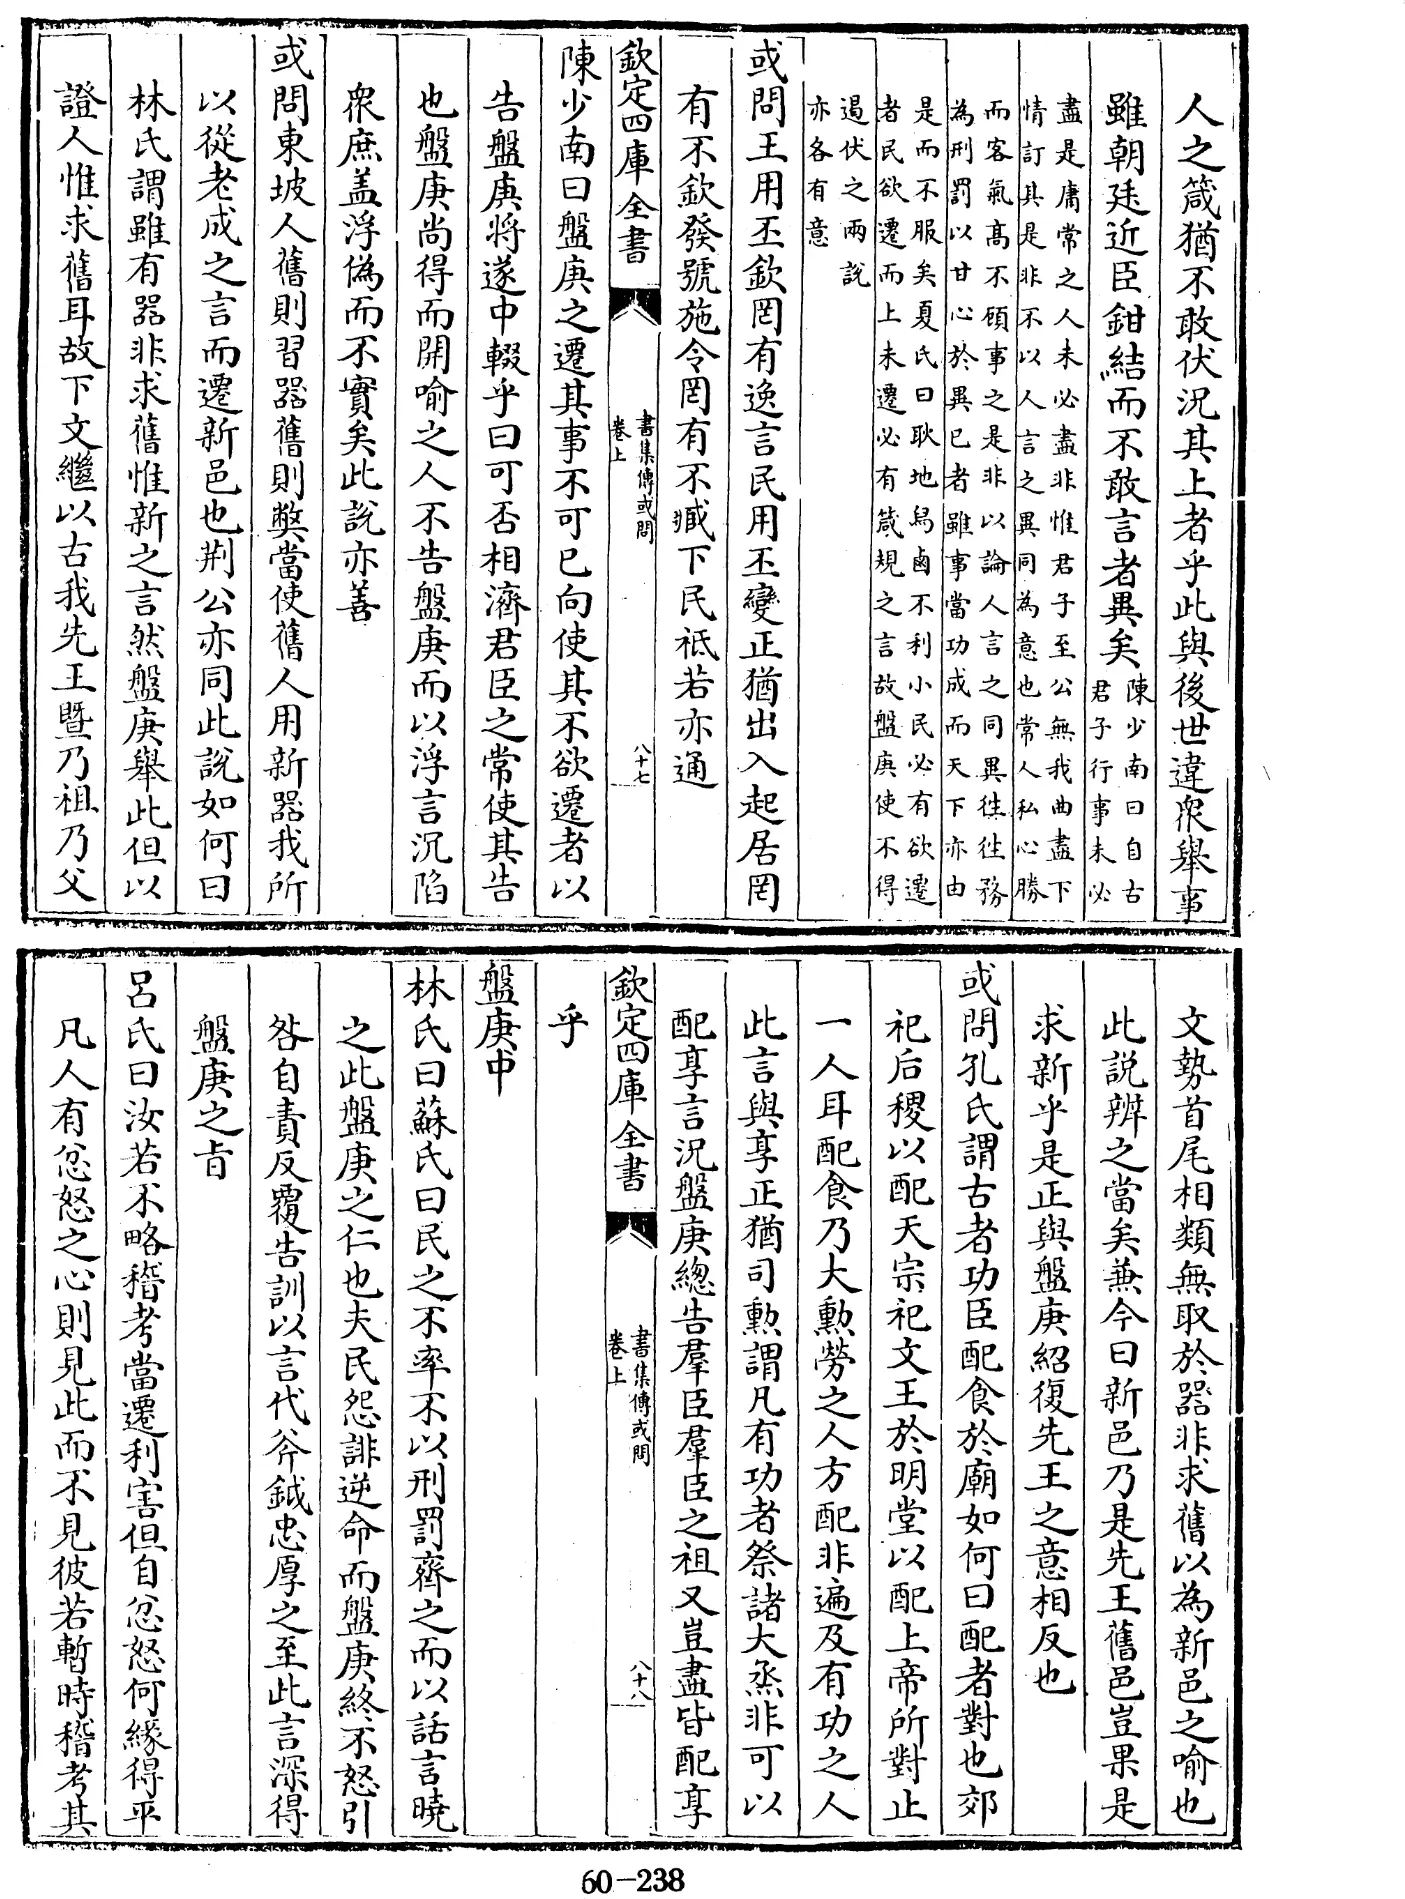 人之箴猶不敢伏況其上者乎此與後世違衆舉事
雖朝廷近臣鉗結而不敢言者異矣陳少南曰自古
君子行事未必
盡是庸常之人未必盡非惟君子至公無我曲盡下
情訂其是非不以人言之異同為意也常人私心勝
而客氣髙不顧事之是非以論人言之同異徃徃務
為刑罰以甘心於異已者雖事當功成而天下亦由
是而不服矣夏氏曰耿地舄鹵不利小民必有欲遷
者民欲遷而上未遷必有箴規之言故盤庚使不得
遏伏之兩說
亦各有意
或問王用丕欽罔有逸言民用丕變正猶出入起居罔
有不欽發號施令罔有不臧下民祗若亦通
欽定四庫全書
書集傳或問
卷上
八十七
陳少南曰盤庚之遷其事不可已向使其不欲遷者以
告盤庚將遂中輟乎曰可否相濟君臣之常使其告
也盤庚尚得而開喻之人不告盤庚而以浮言沉陷
衆庶盖浮僞而不實矣此說亦善
或問東坡人舊則習器舊則弊當使舊人用新器我所
以從老成之言而遷新邑也荆公亦同此說如何曰
林氏謂雖有器非求舊惟新之言然盤庚舉此但以
證人惟求舊耳故下文繼以古我先王暨乃祖乃父
文勢首尾相類無取於器非求舊以為新邑之喻也
此說辨之當矣兼今日新邑乃是先王舊邑豈果是
求新乎是正與盤庚紹復先王之意相反也
或問孔氏謂古者功臣配食於廟如何曰配者對也郊
祀后稷以配天宗祀文王於明堂以配上帝所對止
一人耳配食乃大勲勞之人方配非遍及有功之人
此言與享正猶司勲謂凡有功者祭諸大烝非可以
配享言況盤庚總告羣臣羣臣之祖又豈盡皆配享
欽定四庫全書
書集傳或問
卷上
八十八
乎
盤庚中
林氏曰蘇氏曰民之不率不以刑罰齊之而以話言曉
之此盤庚之仁也夫民怨誹逆命而盤庚終不怒引
咎自責反覆告訓以言代斧鉞忠厚之至此言深得
盤庚之旨
呂氏曰汝若不略稽考當遷利害但自忿怒何緣得平
凡人有忿怒之心則見此而不見彼若暫時稽考其
60-238